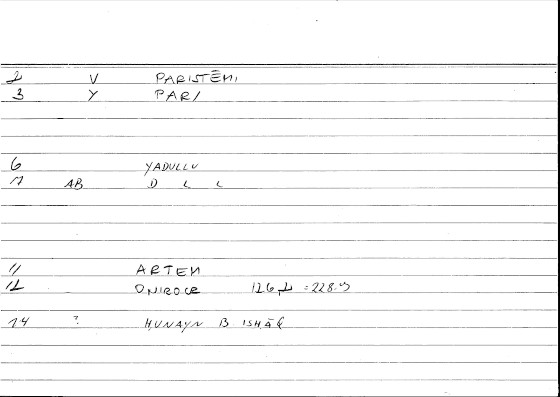 2 V PARISTĒMI
3 Y PARI
6 YADULLU
7 AB D L L
11 ARTEM
12 ONIROCR 126,2 = 228.9
14 ? HUNAYN B ISHĀQ